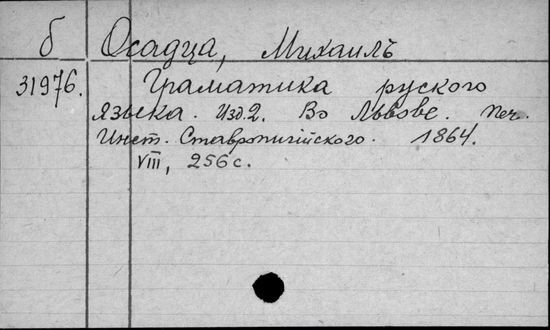 б Осадца, Михаилъ
31976. Граматика руского
языка. Изд. 2. Во Львове. Печ.
Инст. Ставропигійского. 1864.
VIII, 256 с.